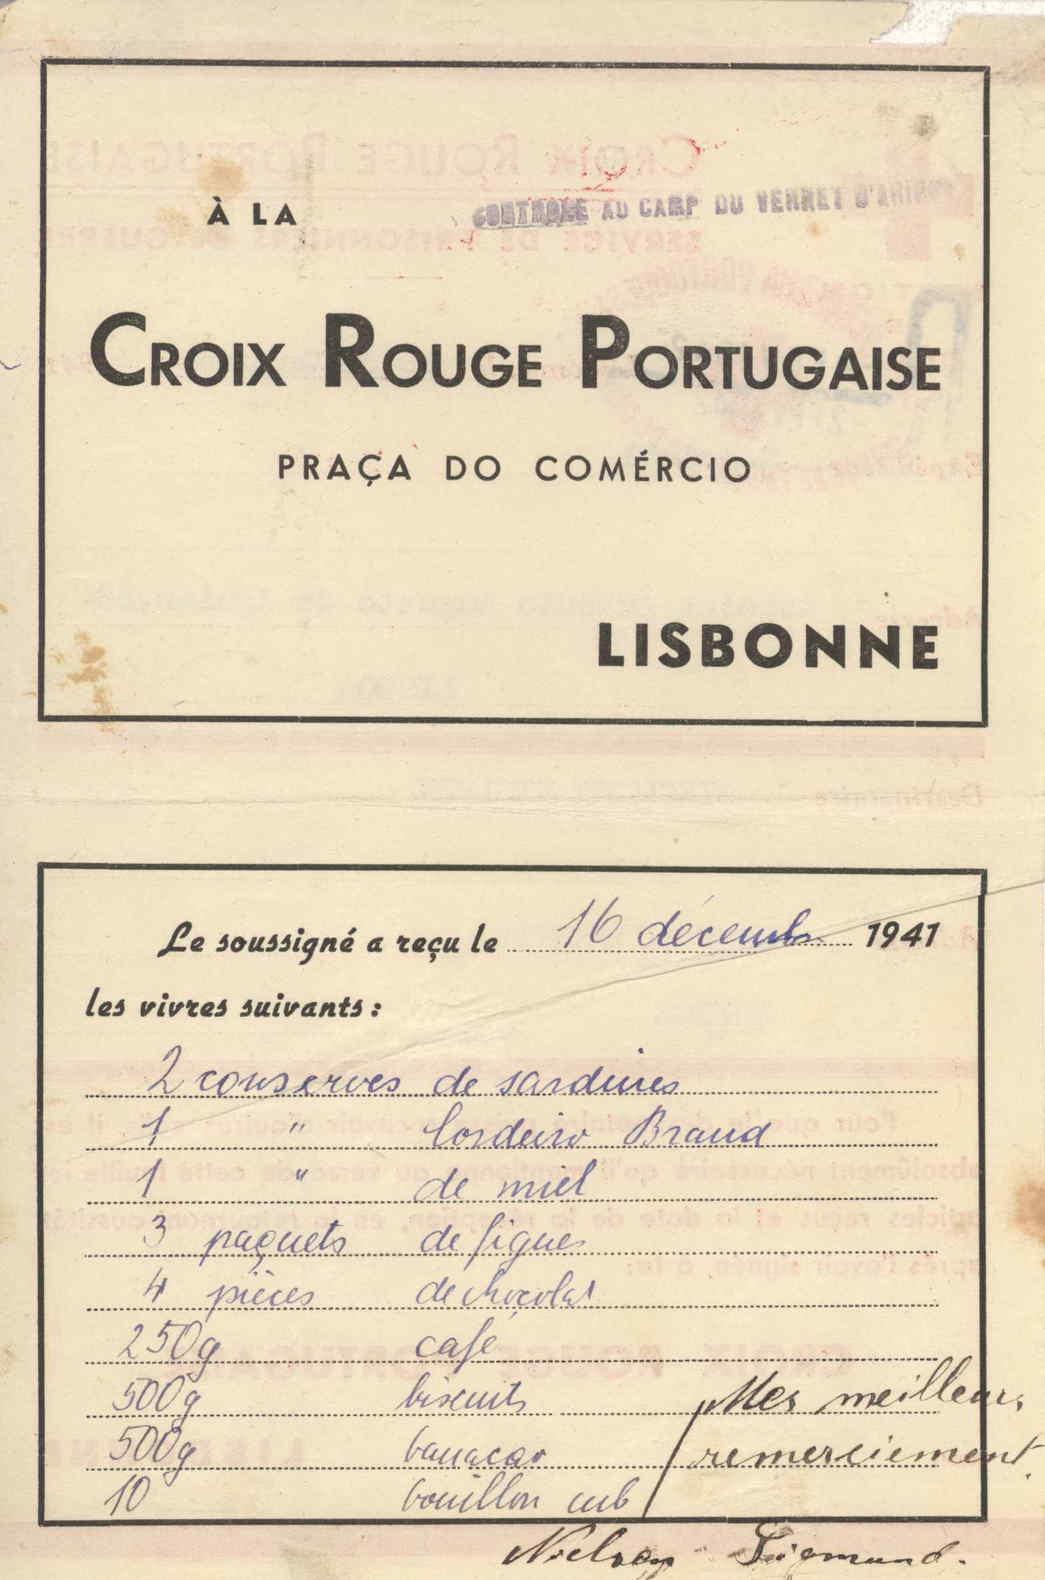 À LA
CONTROLE AU CAMP DU VERNET D'ARIEGE
CROIX ROUGE PORTUGAISE
PRAÇA DO COMÉRCIO
LISBONNE
Le soussigné a reçu le 16 décemb 1941
les vivres suivants:
2 conserves de sardines
1 " Cordeiro Brand
1 " de miel
3 paquets de figues
4 pièces de chocolat
250g café
500g biscuits
500g banacao
10 bouillon cub
Mes meilleurs
remerciement.
Siegmund.